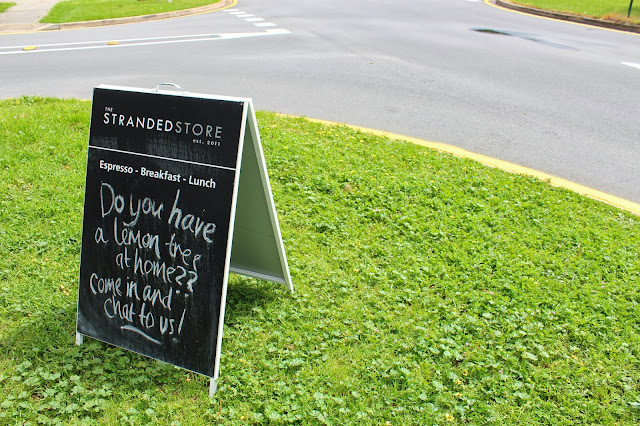 THE
STRANDEDSTORE
est. 2011
Espresso - Breakfast - Lunch
Do you have
a lemon tree
at home??
come in and
chat to us!